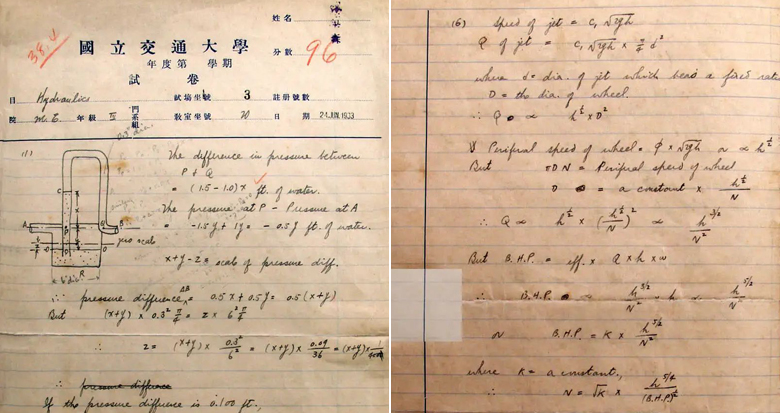 姓名
38.
國立交通大學
分數
96
年度第 學期
試卷
目 Hydraulics 試場坐號 3 註冊號數
院 M.E. 年級 III 門系組 教室坐號 70 日期 24 JUN. 1933
(1) The difference in pressure between
P & Q
= (1.5 - 1.0) x ft. of water.
The pressure at P - Pressure at A
= -1.5y + 1y = -0.5y ft. of water.
zero scale
x+y-z = scale of pressure diff.
∴ pressure difference AB = 0.5x + 0.5y = 0.5(x+y)
But (x+y) x 0.3² π/4 = z x 6² π/4
z = (x+y) x 0.3²/6² = (x+y) x 0.09/36 = (x+y) x 1/400
∴ pressure difference
If the pressure difference is 0.100 ft.,
(6) Speed of jet = c₁ √2gh
Q of jet = c₁ √2gh x π/4 d²
where d = dia. of jet which bears a fixed rate
D = the dia. of wheel.
∴ Q ∝ h^½ D²
Periferal speed of wheel = φ x √2gh or ∝ h^½
But πDN = Periferal speed of wheel
D = a constant x h^½/N
∴ Q ∝ h^½ x (h^½/N)² ∝ h^3/2/N²
But B.H.P. = eff. x Q x h x w
∴ B.H.P. ∝ h^3/2/N² x h ∝ h^5/2/N²
or B.H.P. = K x h^5/2/N²
where K = a constant,
∴ N = √K x h^5/4/(B.H.P.)^½